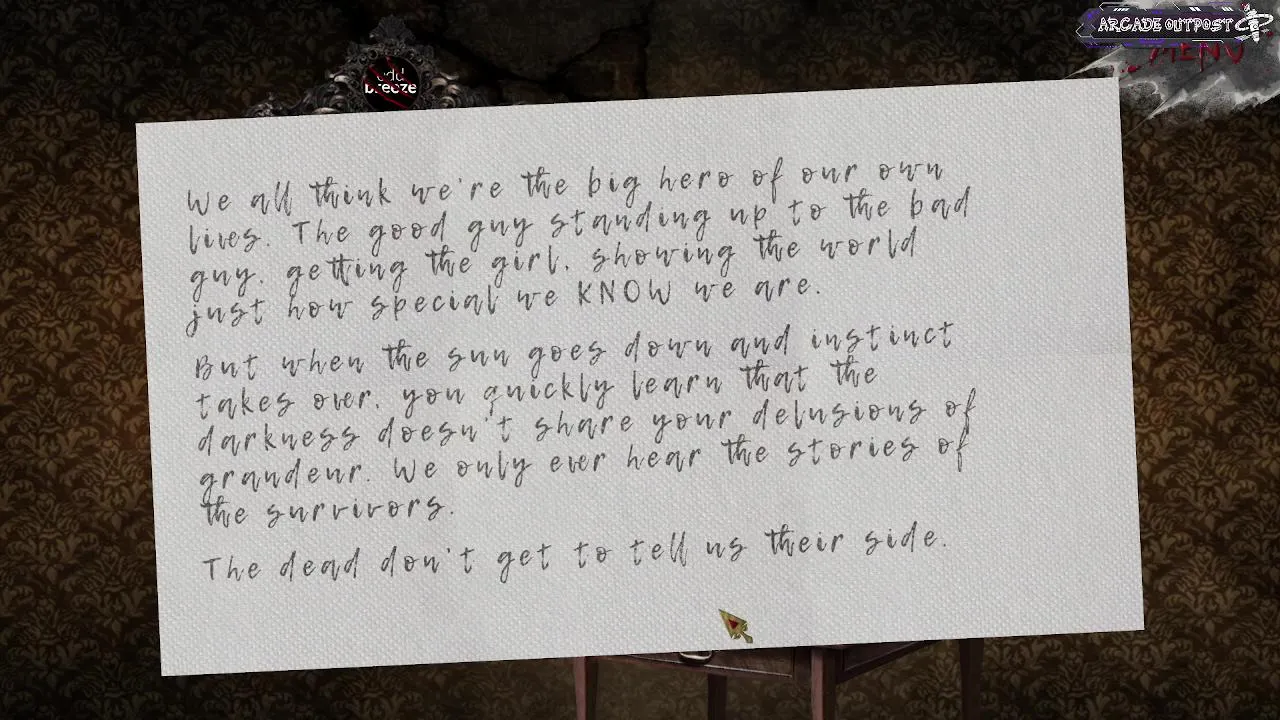 ARCADE OUTPOST
MENU
odd
breeze
We all think we're the big hero of our own
lives. The good guy standing up to the bad
guy, getting the girl, showing the world
just how special we KNOW we are.
But when the sun goes down and instinct
takes over, you quickly learn that the
darkness doesn't share your delusions of
grandeur. We only ever hear the stories of
the survivors.
The dead don't get to tell us their side.